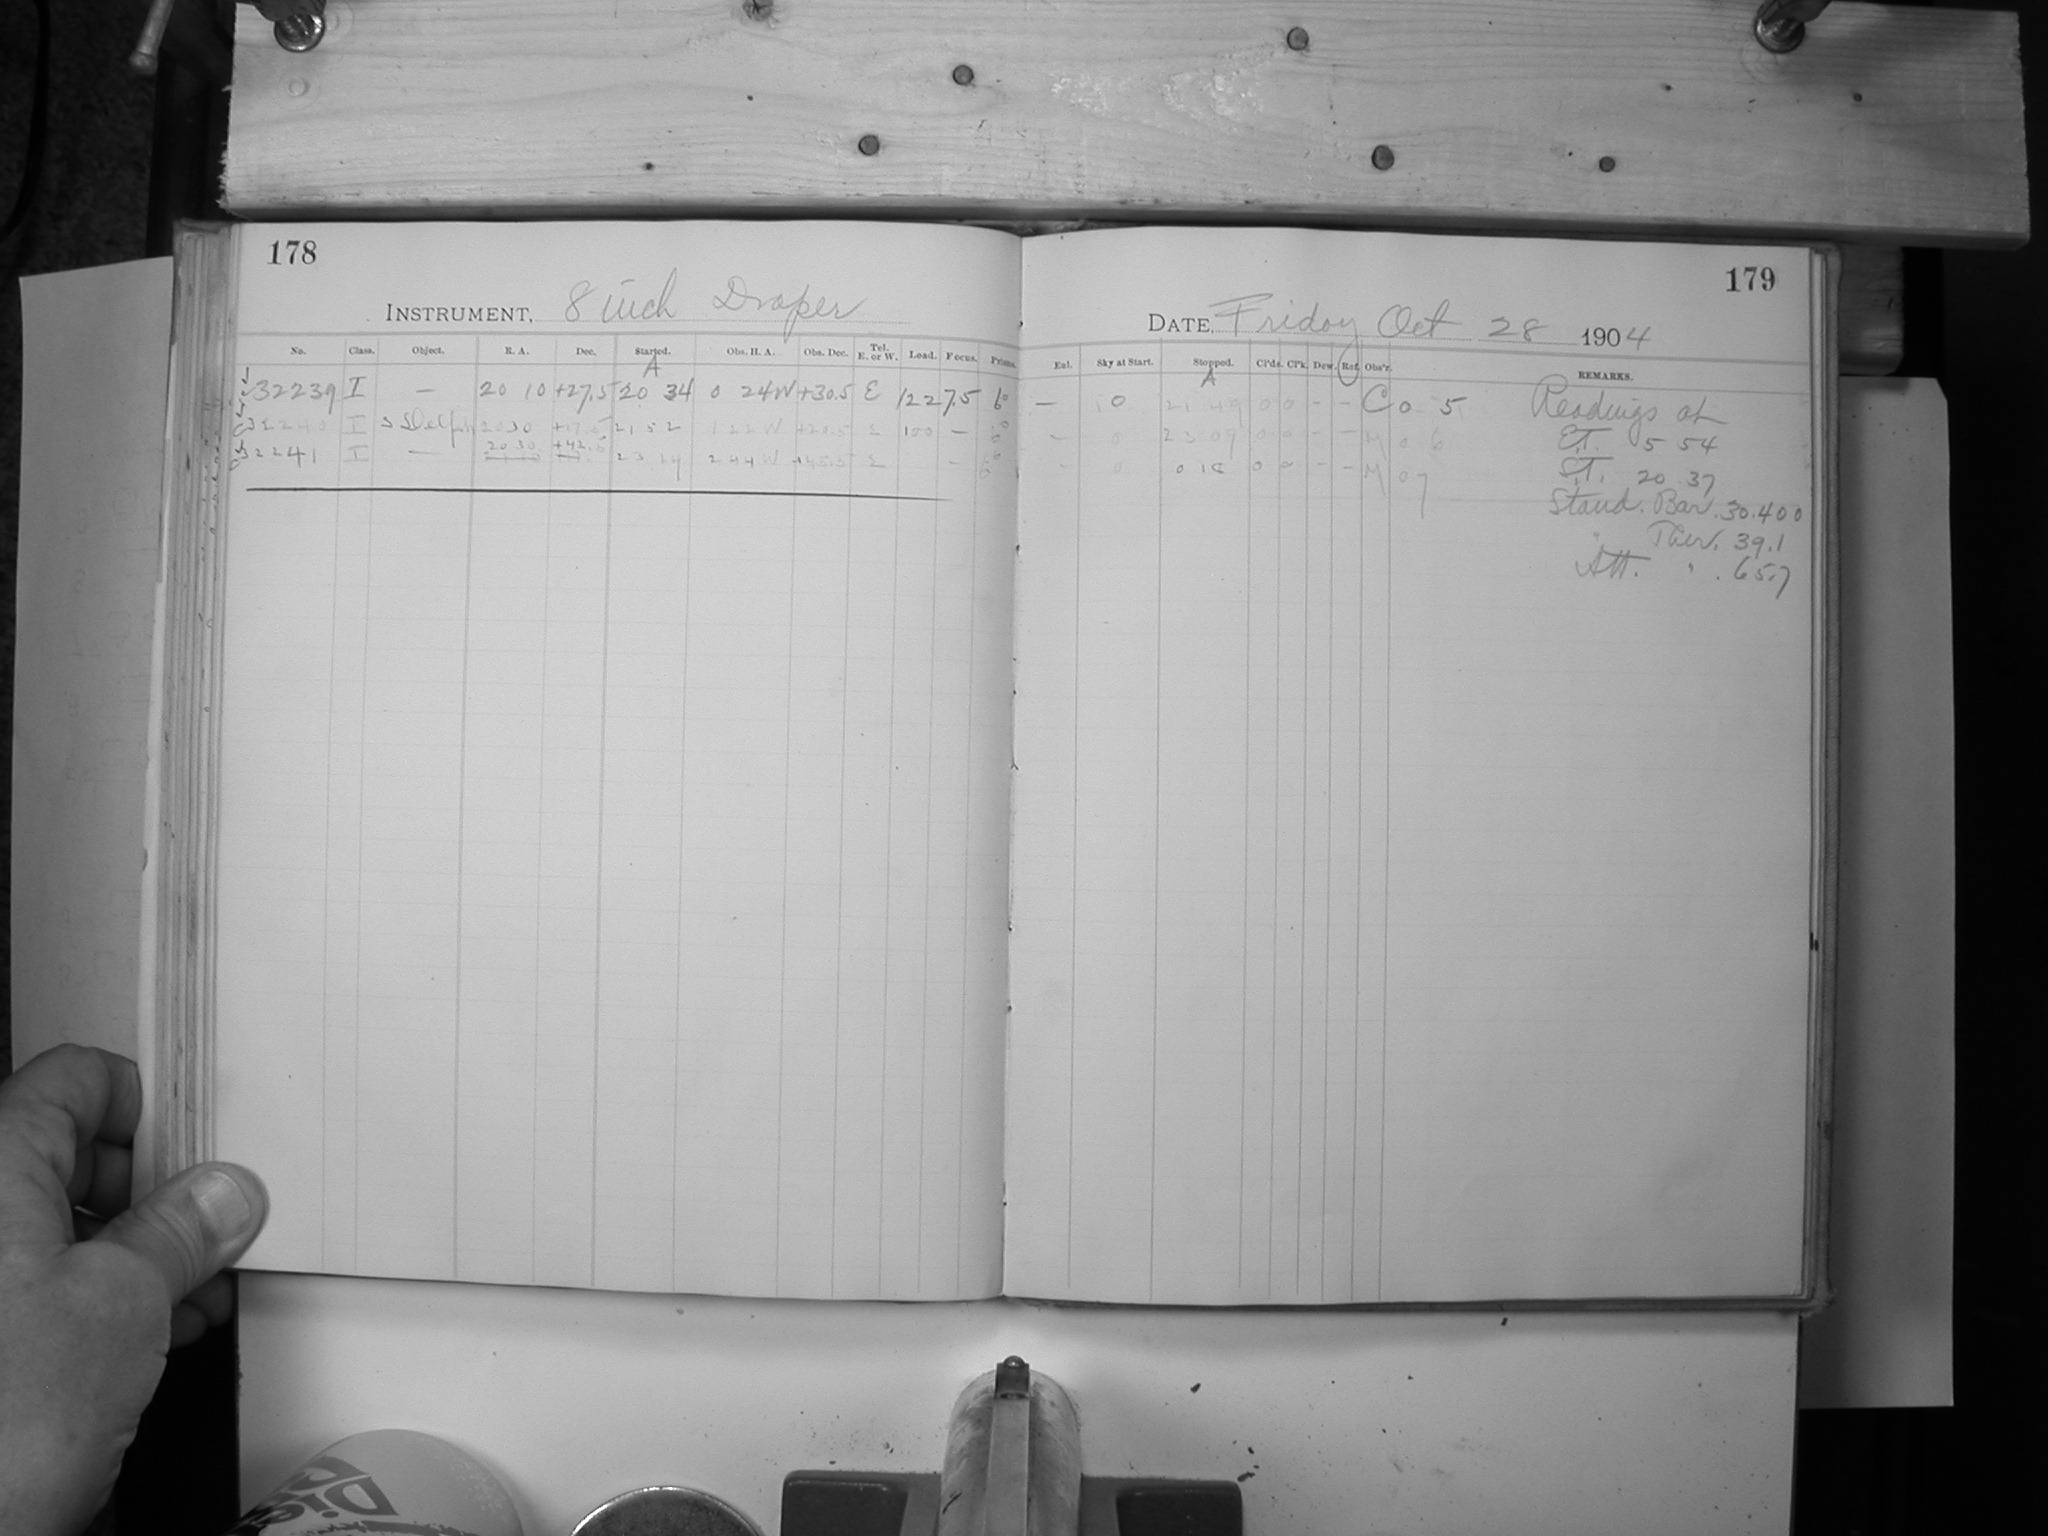 178
INSTRUMENT, 8 inch Draper
No. Class. Object. R. A. Dec. Started. Obs. H. A. Obs. Dec. Tel. E. or W. Load. Focus. Prisms.
A
32239 I — 20 10 +27.5 20 34 0 24W +30.5 E 122 7.5 6°
32240 I S Delph 20 30 +17.5 21 52 1 22 W +20.5 E 100 —
32241 I — 20 30 +42.5 23 14 2 44 W +45.5 E —
179
DATE, Friday Oct 28 1904
Enl. Sky at Start. Stopped. Cl'ds. Cl'k. Dew. Ref. Obs'r. REMARKS.
A
— 0 21 49 0 0 - - C 0 5 Readings at
- 0 23 09 0 0 - - M 0 6 E.T. 5 54
- 0 0 18 0 0 - - M 07 S.T. 20 37
Stand. Bar. 30.400
" Ther. 39.1
Att. " 65.7
Die